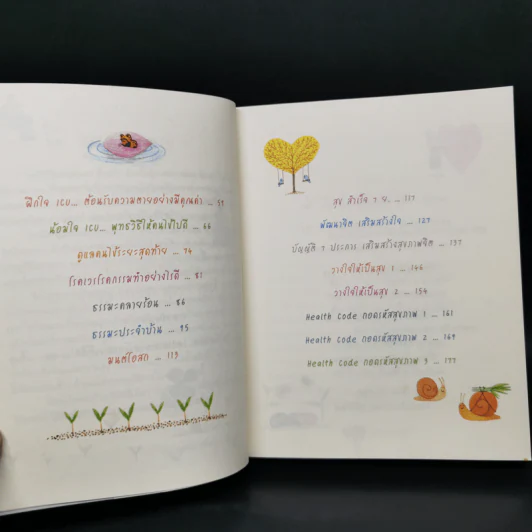 ฝึกใจ ICU... ต้อนรับความตายอย่างมีคุณค่า ... 55
น้อมใจ ICU... พุทธวิธีให้คนไข้ไปดี ... 66
ดูแลคนไข้ระยะสุดท้าย ... 74
โรคเวรโรคกรรมทำอย่างไรดี ... 81
ธรรมะคลายร้อน ... 86
ธรรมะประจำบ้าน ... 95
มนต์โอสถ ... 113
สุข สำเร็จ 7 ย. ... 117
พัฒนาจิต เสริมสร้างใจ ... 127
บัญญัติ 7 ประการ เสริมสร้างสุขภาพจิต ... 137
วางใจให้เป็นสุข 1 ... 146
วางใจให้เป็นสุข 2 ... 154
Health Code ถอดรหัสสุขภาพ 1 ... 161
Health Code ถอดรหัสสุขภาพ 2 ... 169
Health Code ถอดรหัสสุขภาพ 3 ... 177